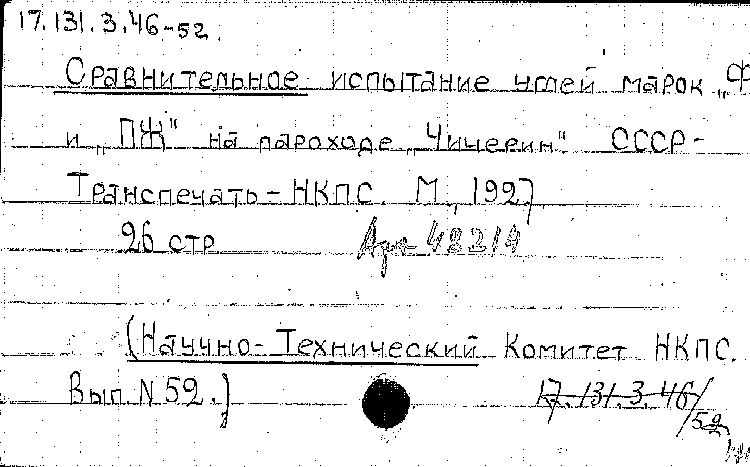 17.131.3.46-52.
Сравнительное испытание углей марок „Ф
и „ПЖ" на пароходе „Чичерин" СССР-
Транспечать-НКПС. М., 1927
26 стр Арх 48214
(Научно-Технический Комитет НКПС.
Вып. N 52.)
17.131.3.46/
52